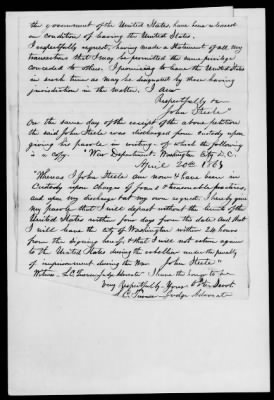 the government of the United States, have been released
on condition of leaving the United States.
I respectfully request, having made a statement of all my
transactions that I may be permitted the same privilege
conceded to others. I promising to leave the United States
in such time as may be designated by those having
jurisdiction in the matter. I am
Respectfully &c
John Steele"
On the same day of the receipt of the above petition
the said John Steele was discharged from Custody upon
giving his parole in writing, of which the following
is a copy. "War Department. Washington City D.C.
April 20th 1863
"Whereas I John Steele am now & have been in
Custody upon charges of fraud & treasonable practices,
and upon my discharge at my own request I hereby give
my parole that I will depart without the limits of the
United States within four days from this date and that
I will leave the city of Washington within 24 hours
from the signing hereof, & that I will not return again
to the United States during the rebellion under the penalty
of imprisonment during the War. John Steele"
Witness. L.C. Turner Judge Advocate I have the honor to be
Very Respectfully Your Obt Servt
L.C. Turner Judge Advocate